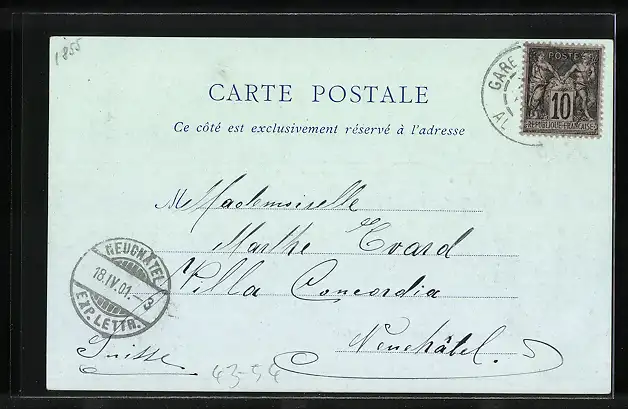 1855
GARE
AL
POSTE
10
REPUBLIQUE FRANÇAISE
CARTE POSTALE
Ce côté est exclusivement réservé à l'adresse
M Mademoiselle
Marthe Evard
Villa Concordia
Neuchâtel.
Suisse
NEUCHÂTEL
18.IV.01.-3
EXP. LETTR.
43-54